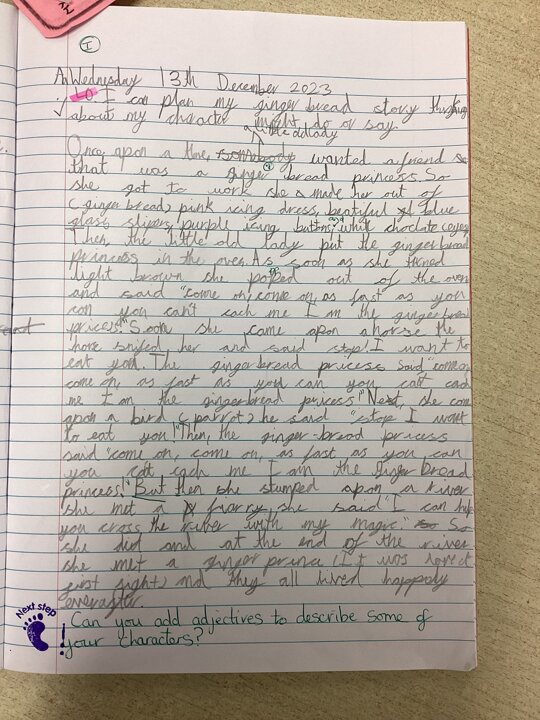 I
Wednesday 13th December 2023
LO I can plan my ginger bread story thinking
about my character might do or say.
a little old lady
Once upon a time, somebody wanted a friend
that was a ginger bread princess. So
she got to work she made her out of
(gingerbread) pink icing dress, beatiful blue
glass slipers, purple icing buttons, and white choclate eyes
Then, the little old lady put the gingerbread
princess in the oven. As soon as she turned
light brown she popped out of the oven
and said "come on, come on, as fast as you
can you can't cach me I am the gingerbread
pricess!" Soon she came apon a horse the
horse snifed her and said stop! I want to
eat you. The gingerbread pricess said "come on
come on, as fast as you can you cat cach
me I am the gingerbread pricess!" Next, she come
apon a bird (parrot) he said "stop I want
to eat you!" Then, the ginger-bread pricess
said "come on, come on, as fast as you can
you cat cach me I am the ginger bread
princess!" But then she stumped apon a river
she met a fiarry, she said "I can help
you cross the river with my magic." So
she did and at the end of the river
she met a ginger prince (It was
first sight) and they all lived happoly
everafter.
Next step
! Can you add adjectives to describe some of
your characters?